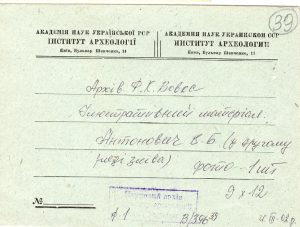 39
АКАДЕМІЯ НАУК УКРАЇНСЬКОЇ РСР
ІНСТИТУТ АРХЕОЛОГІЇ
Київ, Бульвар Шевченка, 14
АКАДЕМИЯ НАУК УКРАИНСКОЙ ССР
ИНСТИТУТ АРХЕОЛОГИИ
Киев, Бульвар Шевченко, 14
Архів Ф.К. Вовка
Ілюстративний матеріал.
Антонович В.Б (у другому
ряді зліва) фото - 1 шт
9 x 12
№
ф. 1